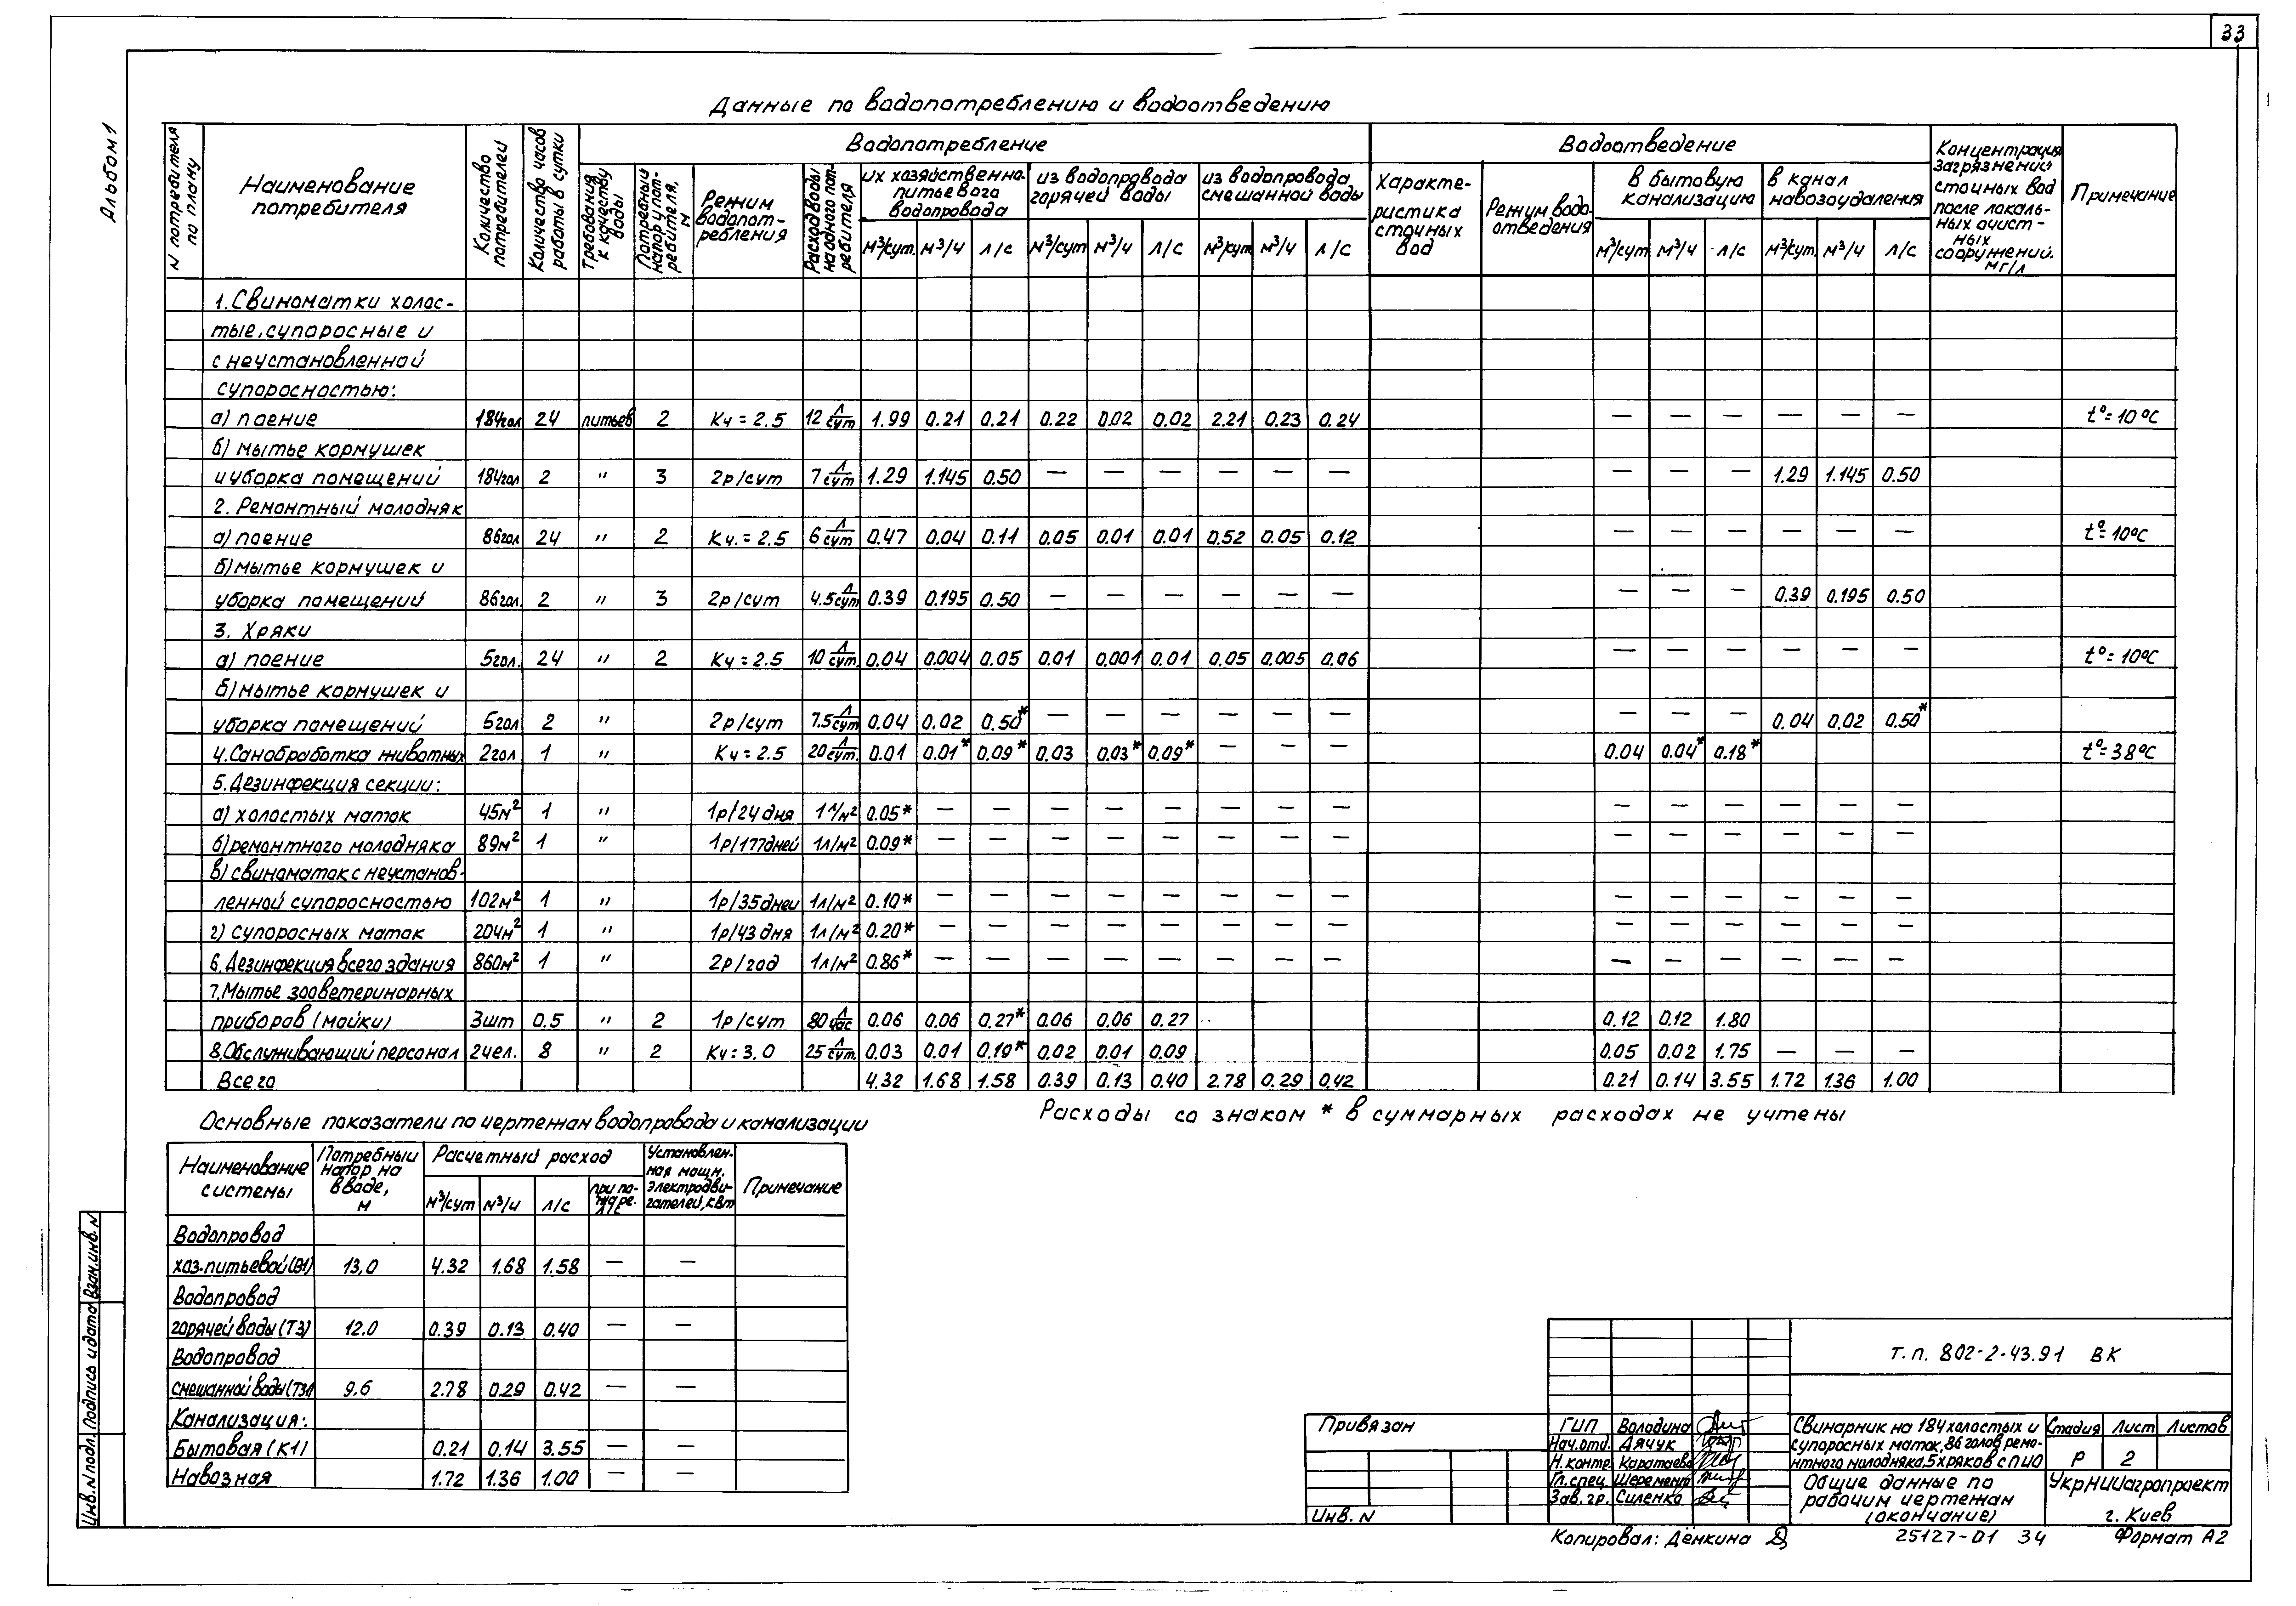 33
Альбом 1
Данные по водопотреблению и водоотведению
N потребителя по плану
Наименование потребителя
Количество потребителей
Количество часов работы в сутки
Водопотребление
Требования к качеству воды
Потребный напор у потребителя, м
Режим водопотребления
Расход воды на одного потребителя
их хозяственно-питьевого водопровода
из водопровода горячей воды
из водопровода смешанной воды
м³/сут. м³/ч л/с м³/сут м³/ч л/с м³/сут м³/ч л/с
Водоотведение
Характеристика сточных вод
Режим водоотведения
в бытовую канализацию
в канал навозоудаления
м³/сут м³/ч л/с м³/сут. м³/ч л/с
Концентрация загрязнений сточных вод после локальных очистных сооружений, мг/л
Примечание
1. Свиноматки холос-
тые, супоросные и
с неустановленной
супоросностью:
а) поение 184гол 24 питьев 2 Кч = 2.5 12 л/сут 1.99 0.21 0.21 0.22 0.02 0.02 2.21 0.23 0.24 — — — — — — t°=10°С
б) мытье кормушек
и уборка помещений 184гол 2 " 3 2р/сут 7 л/сут 1.29 1.145 0.50 — — — — — — — — — 1.29 1.145 0.50
2. Ремонтный молодняк
а) поение 86гол 24 " 2 Кч. = 2.5 6 л/сут 0.47 0.04 0.11 0.05 0.01 0.01 0.52 0.05 0.12 — — — — — — t°=10°С
б) мытье кормушек и
уборка помещений 86гол. 2 " 3 2р/сут 4.5 л/сут 0.39 0.195 0.50 — — — — — — — — — 0.39 0.195 0.50
3. Хряки
а) поение 5гол. 24 " 2 Кч = 2.5 10 л/сут. 0.04 0.004 0.05 0.01 0.001 0.01 0.05 0.005 0.06 — — — — — — t°=10°С
б) мытье кормушек и
уборка помещений 5гол 2 " 2р/сут 7.5 л/сут 0.04 0.02 0.50* — — — — — — — — — 0.04 0.02 0.50*
4. Санобработка животных 2гол 1 " Кч = 2.5 20 л/сут. 0.01 0.01* 0.09* 0.03 0.03* 0.09* — — — 0.04 0.04* 0.18* t°=38°С
5. Дезинфекция секции:
а) холостых маток 45м² 1 " 1р/24 дня 1л/м² 0.05* — — — — — — — — — — — — — —
б) ремонтного молодняка 89м² 1 " 1р/177дней 1л/м² 0.09* — — — — — — — — — — — — — —
в) свиноматок с неустанов-
ленной супоросностью 102м² 1 " 1р/35дней 1л/м² 0.10* — — — — — — — — — — — — — —
г) супоросных маток 204м² 1 " 1р/43 дня 1л/м² 0.20* — — — — — — — — — — — — — —
6. Дезинфекция всего здания 860м² 1 " 2р/год 1л/м² 0.86* — — — — — — — — — — — — — —
7. Мытье зооветеринарных
приборов (мойки) 3шт 0.5 " 2 1р/сут 80 л/час 0.06 0.06 0.27* 0.06 0.06 0.27 0.12 0.12 1.80
8. Обслуживающий персонал 2чел. 8 " 2 Кч = 3.0 25 л/сут. 0.03 0.01 0.19* 0.02 0.01 0.09 0.05 0.02 1.75 — — —
Всего 4.32 1.68 1.58 0.39 0.13 0.40 2.78 0.29 0.42 0.21 0.14 3.55 1.72 1.36 1.00
Расходы со знаком * в суммарных расходах не учтены
Основные показатели по чертежам водопровода и канализации
Наименование системы
Потребный напор на вводе, м
Расчетный расход
м³/сут м³/ч л/с при пожаре. л/с
Установленная мощн. электродвигателей, кВт
Примечание
Водопровод
хоз-питьевой (В1) 13,0 4.32 1.68 1.58 — —
Водопровод
горячей воды (Т3) 12.0 0.39 0.13 0.40 — —
Водопровод
смешанной воды (Т31) 9.6 2.78 0.29 0.42 — —
Канализация:
Бытовая (К1) 0.21 0.14 3.55 — —
Навозная 1.72 1.36 1.00 — —
Инв. N подл. Подпись и дата Взам. инв. N
Привязан
Инв. N
ГИП Володина
Нач. отд. Дячук
Н. контр. Каратаева
Гл. спец. Шеремент
Зав. гр. Силенко
т. п. 802-2-43.91 ВК
Свинарник на 184 холостых и
супоросных маток, 86 голов ремо-
нтного молодняка, 5 хряков с ПИО
Стадия Лист Листов
Р 2
Общие данные по
рабочим чертежам
(окончание)
УкрНИИагропроект
г. Киев
Копировал: Дёнкина
25127-01 34
Формат А2